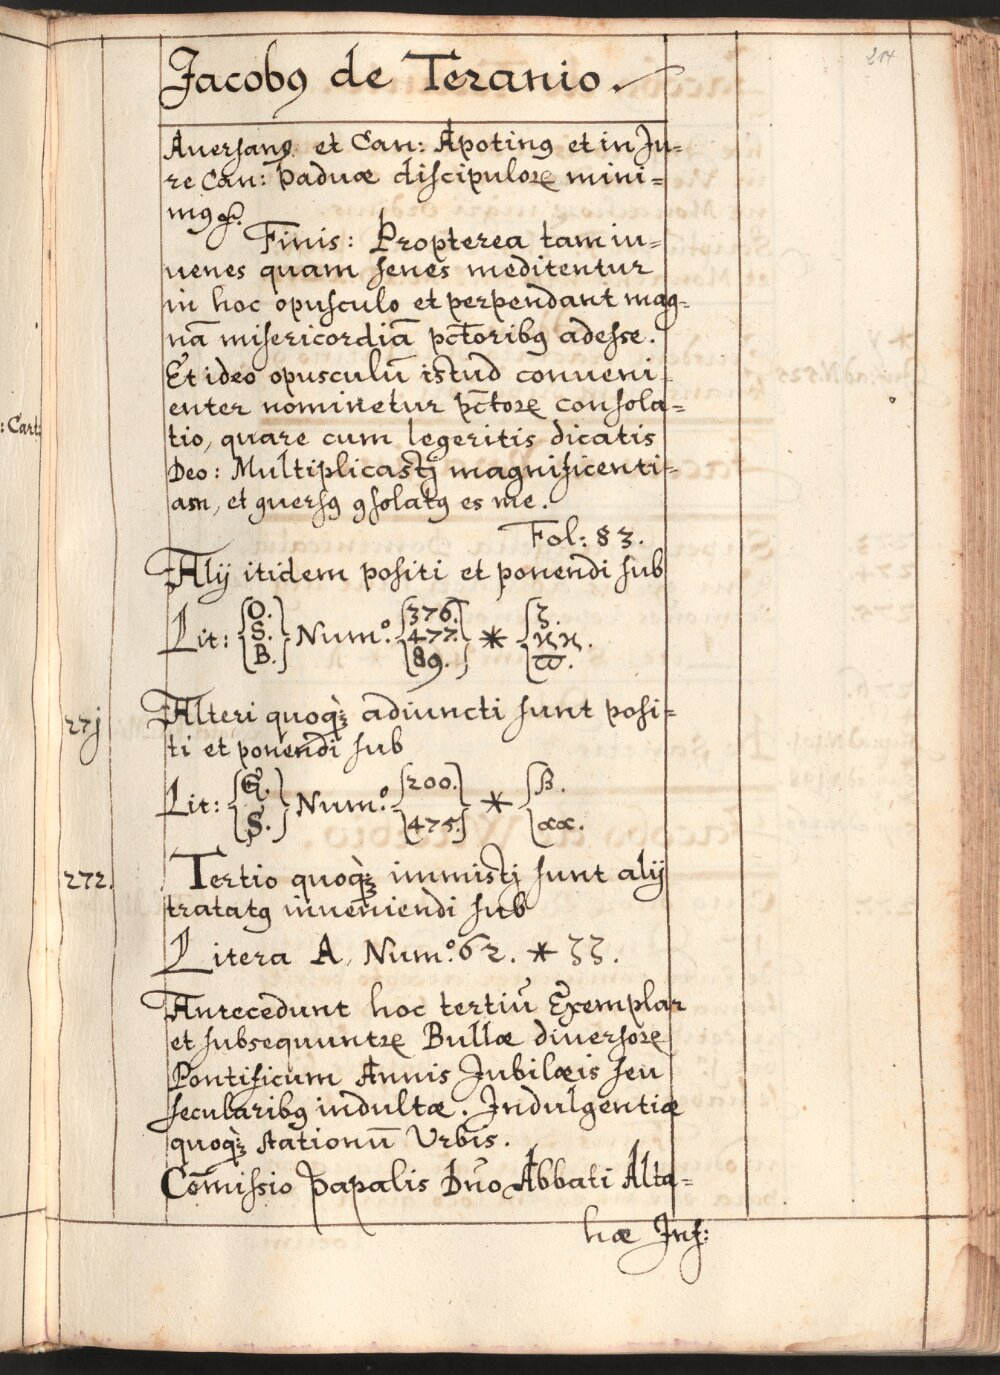 204
Jacobꝰ de Teranio.
Auersanꝰ et Can: Apotinꝰ et in Ju=
re Can: Paduæ discipuloꝝ mini=
mꝰ
Finis: Propterea tam iu=
uenes quam senes meditentur
in hoc opusculo et perpendant mag=
nā misericordiā pc̄toribꝰ adesse.
Et ideo opusculū istud conueni=
enter nominetur pc̄toꝝ consola=
tio, quare cum legeritis dicatis
Deo: Multiplicastj magnificenti=
am, et ꝯuersꝰ ꝯsolatꝰ es me.
Fol: 83.
: Cart:
Alij itidem positi et ponendi sub
Lit: { O. S. B. } Num.º { 376. 477. 89. } * { ʒ. ϰϰ. ϖ. }
27j
Alteri quoqꝫ adiuncti sunt posi=
ti et ponendi sub
Lit: { E. S. } Num.º { 200. 475. } * { β. αα. }
272.
Tertio quoqꝫ immistj sunt alij
tratatꝰ inueniendi sub
Litera A, Num.º 62. * ʒʒ.
Antecedunt hoc tertiū Exemplar
et subsequuntꝝ Bullæ diuersoꝝ
Pontificum Annis Jubilæis seu
secularibꝰ indultæ. Indulgentiæ
quoqꝫ stationū Vrbis.
Com̄issio Papalis Dn̄o Abbati Alta=
hæ Inf: